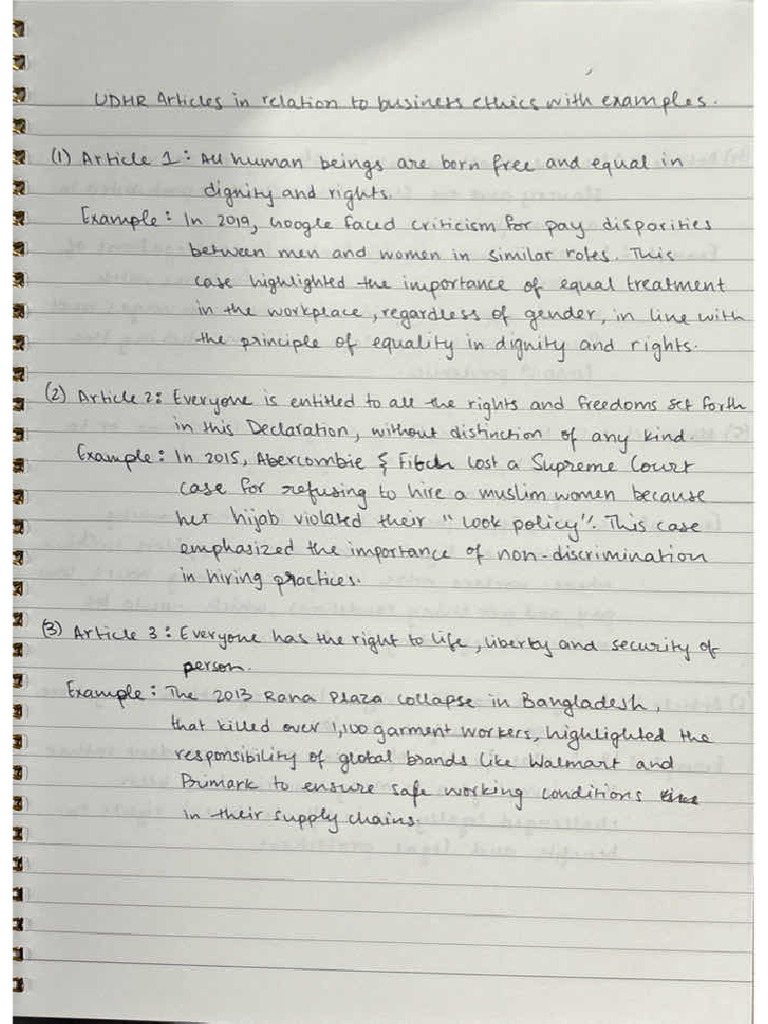 UDHR Articles in relation to business ethics with examples.
(1) Article 1: All human beings are born free and equal in
dignity and rights.
Example: In 2019, Google faced criticism for pay disparities
between men and women in similar roles. This
case highlighted the importance of equal treatment
in the workplace, regardless of gender, in line with
the principle of equality in dignity and rights.
(2) Article 2: Everyone is entitled to all the rights and freedoms set forth
in this Declaration, without distinction of any kind
Example: In 2015, Abercombie & Fitch lost a Supreme Court
case for refusing to hire a muslim women because
her hijab violated their "look policy". This case
emphasized the importance of non-discrimination
in hiring practices.
(3) Article 3: Everyone has the right to life, liberty and security of
person.
Example: The 2013 Rana Plaza collapse in Bangladesh,
that killed over 1,100 garment workers, highlighted the
responsibility of global brands like Walmart and
Primark to ensure safe working conditions
in their supply chains.